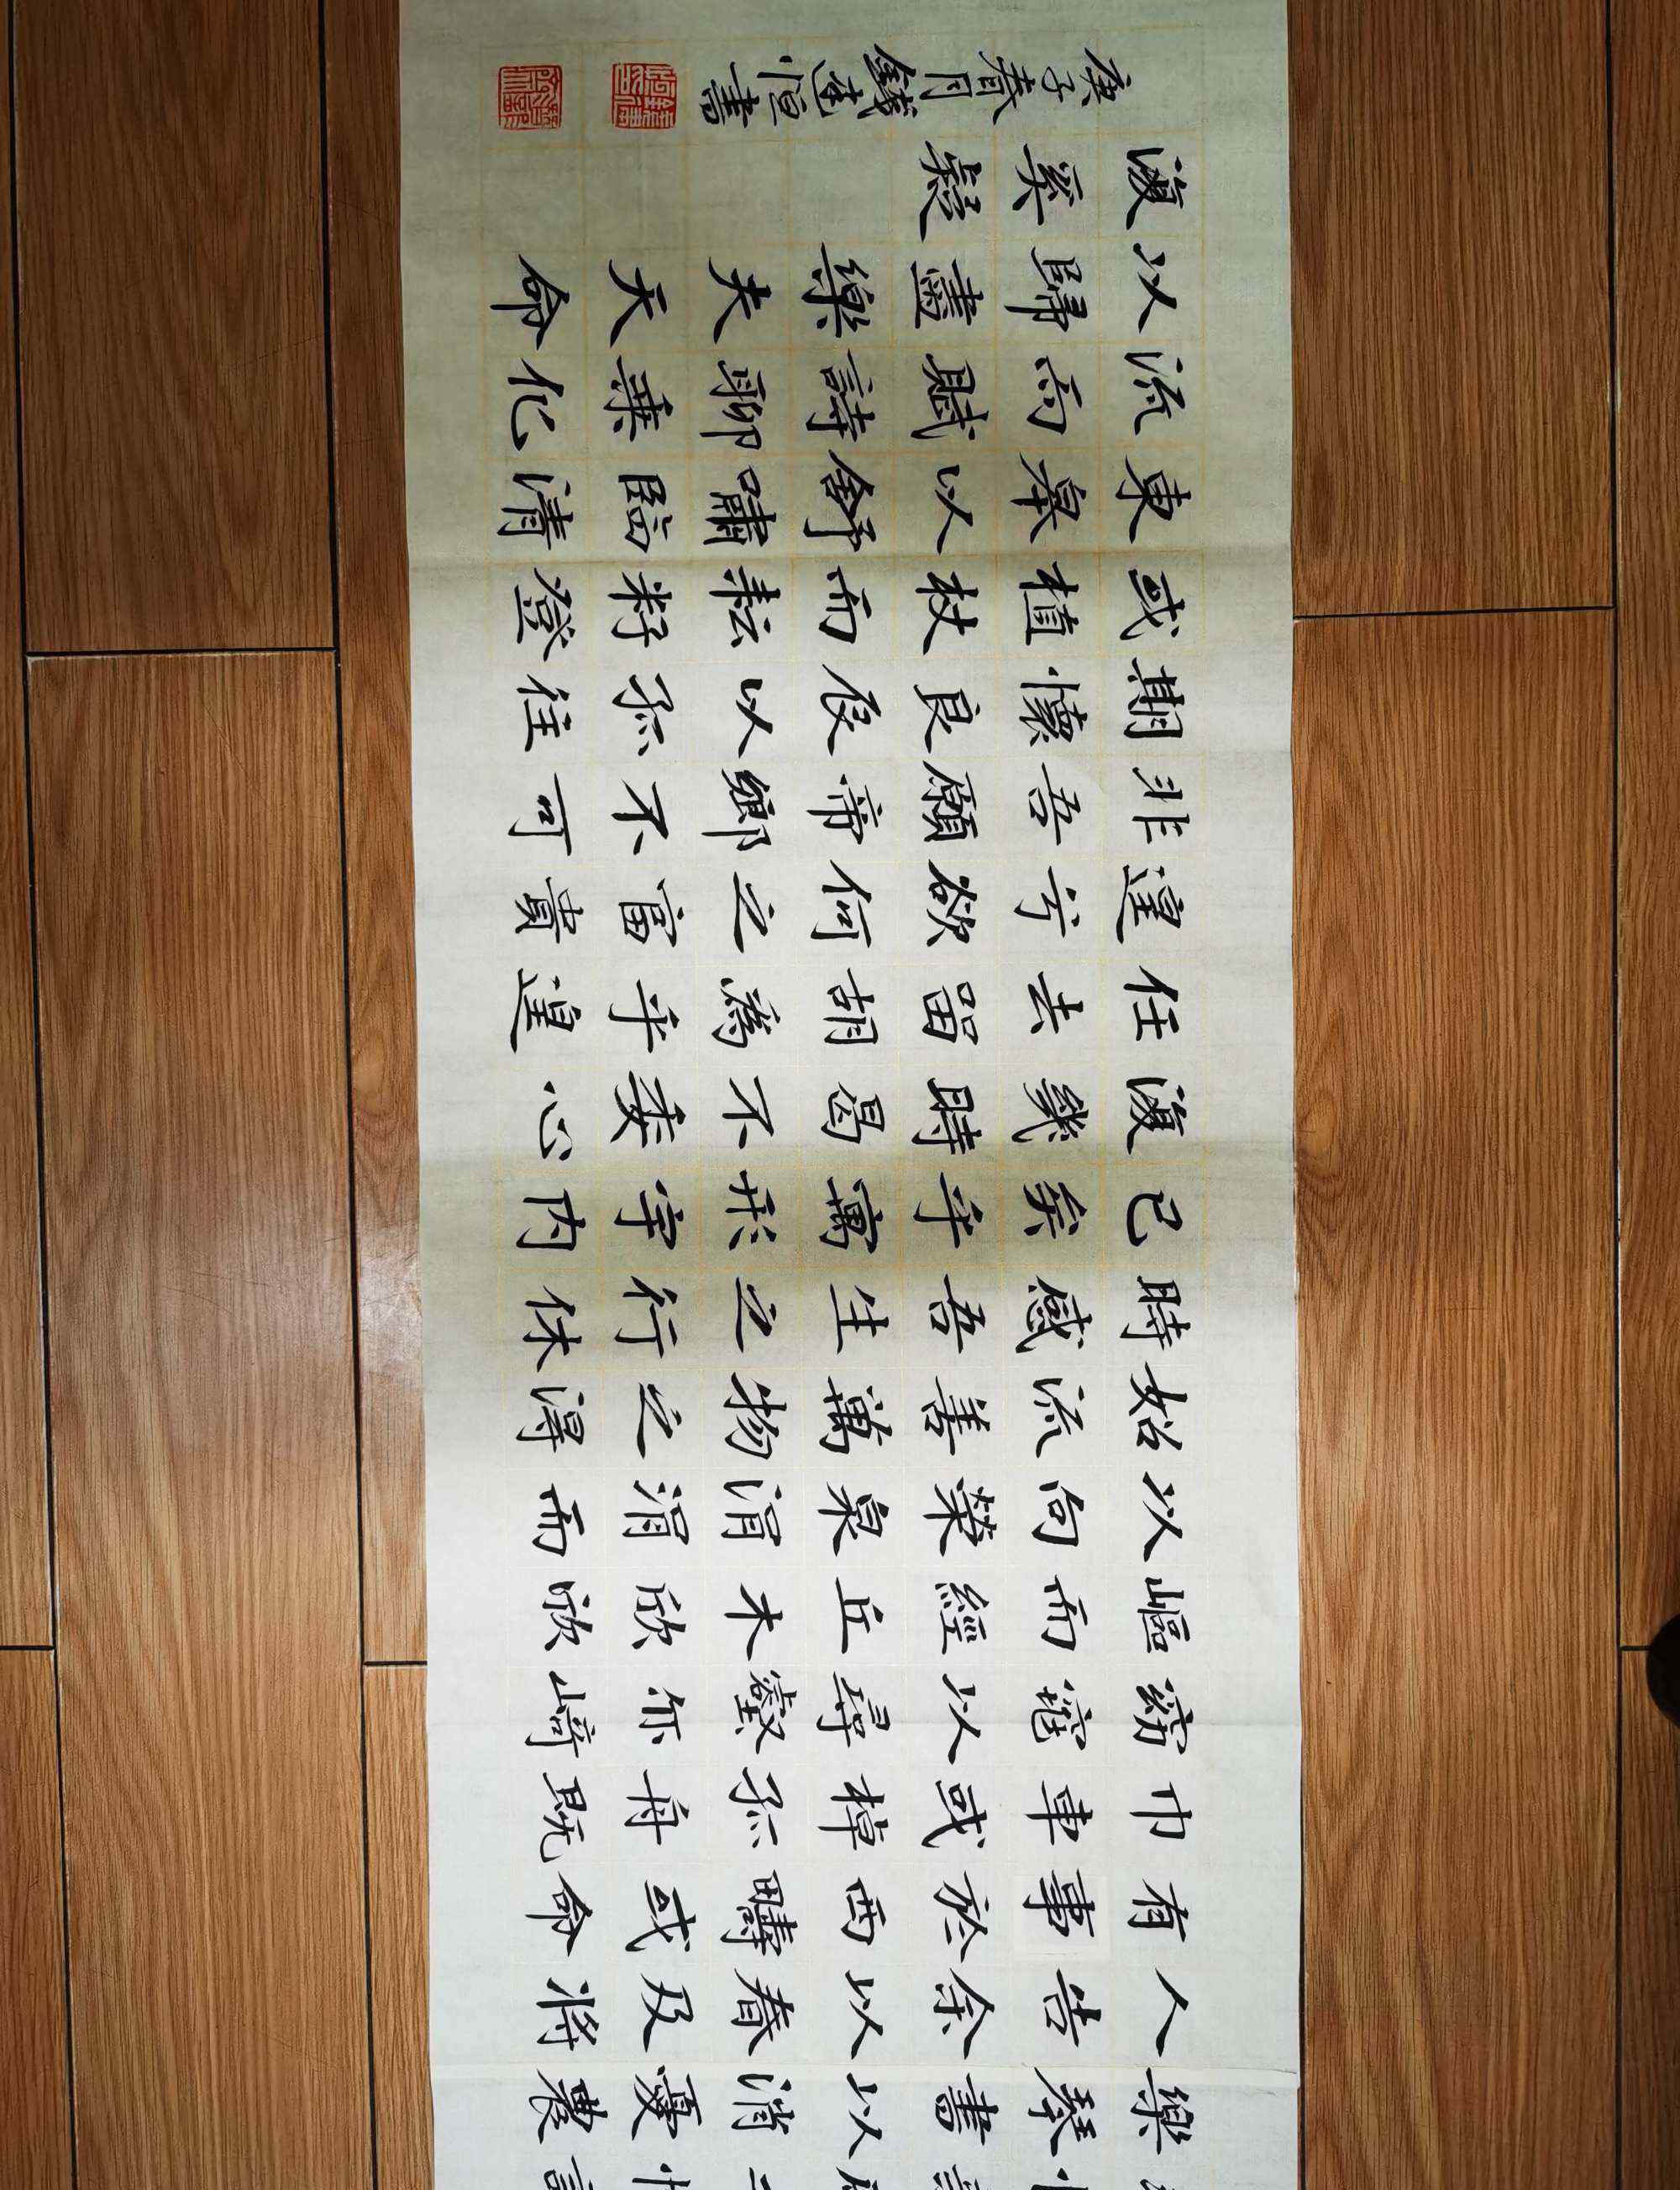 樂琴書以消憂農
人告余以春及將
有事於西疇或命
巾車或棹孤舟既
窈窕以尋壑亦崎
嶇而經丘木欣欣
以向榮泉涓涓而
始流善萬物之得
時感吾生之行休
已矣乎寓形宇内
復幾時曷不委心
任去留胡為乎遑
遑兮欲何之富貴
非吾願帝鄉不可
期懷良辰以孤往
或植杖而耘耔登
東皋以舒嘯臨清
流而賦詩聊乘化
以歸盡樂夫天命
復奚疑
庚子春月 恒書